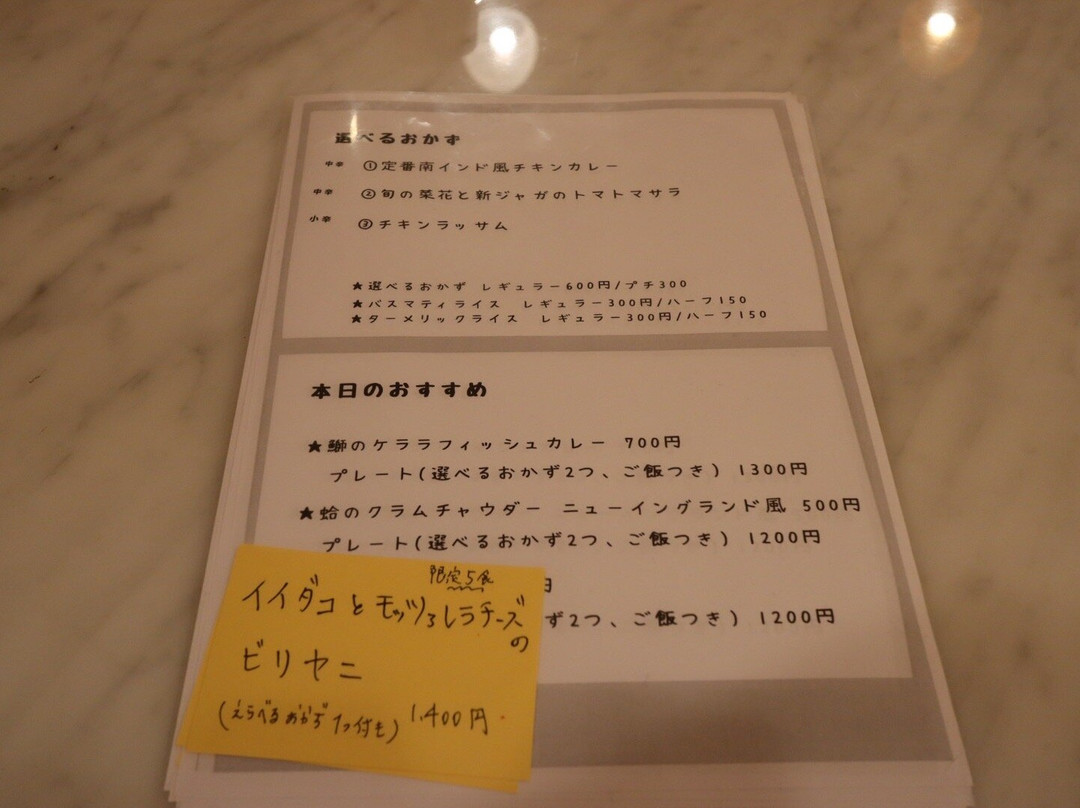 選べるおかず
中辛 ①定番南インド風チキンカレー
中辛 ②旬の菜花と新ジャガのトマトマサラ
小辛 ③チキンラッサム
★選べるおかず レギュラー600円/プチ300
★バスマティライス レギュラー300円/ハーフ150
★ターメリックライス レギュラー300円/ハーフ150
本日のおすすめ
★鰤のケララフィッシュカレー 700円
プレート(選べるおかず2つ、ご飯つき) 1300円
★蛤のクラムチャウダー ニューイングランド風 500円
プレート(選べるおかず2つ、ご飯つき) 1200円
円
ず2つ、ご飯つき) 1200円
限定5食
イイダコとモッツァレラチーズ
の
ビリヤニ
(えらべるおかず1つ付き) 1,400円